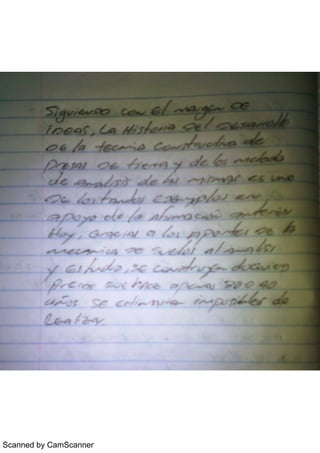 Siguiendo con el margen de
ideas, la Historia del desarrollo
de la tecnica constructiva de
presas de tierra y de los metodo
de analisis de las mismas es uno
de los tantos ejemplos en
apoyo de la afirmación anterior
Hoy, Gracias a los aportes de la
mecanica de suelos al analisis
y estudio, se construyen
que hace apenas 30 o 40
años se imposibles de
Realizar.
Scanned by CamScanner